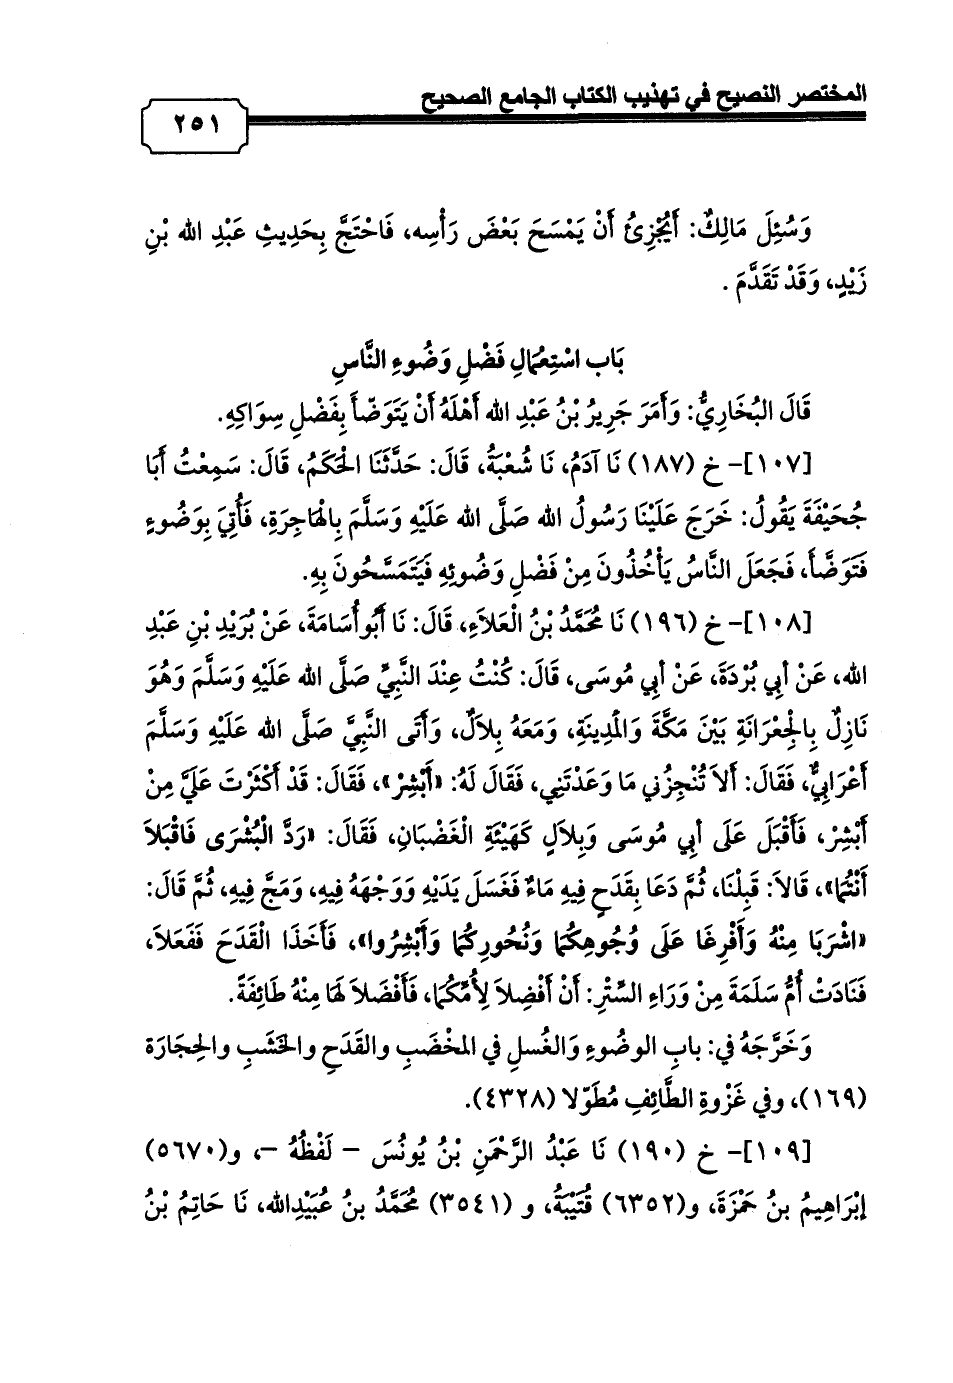 المختصر النصيح في تهذيب الكتاب الجامع الصحيح
٢٥١
وَسُئِلَ مَالِكٌ: أَيُجْزِئُ أَنْ يَمْسَحَ بَعْضَ رَأْسِه، فَاحْتَجَّ بِحَدِيثِ عَبْدِ الله بْنِ
زَيْدٍ، وَقَدْ تَقَدَّمَ .
بَاب اسْتِعْمَالِ فَضْلِ وَضُوءِ النَّاسِ
قَالَ البُخَارِيُّ: وَأَمَرَ جَرِيرُ بْنُ عَبْدِ الله أَهْلَهُ أَنْ يَتَوَضَّأ بِفَضْلِ سِوَاكِهِ.
[١٠٧]- خ (١٨٧) نَا آدَمُ، نَا شُعْبَةُ، قَالَ: حَدَّثَنَا الْحَكَمُ، قَالَ: سَمِعْتُ أَبَا
جُحَيْفَةَ يَقُولُ: خَرَجَ عَلَيْنَا رَسُولُ الله صَلَّى الله عَلَيْهِ وَسَلَّمَ بِالْهَاجِرَةِ، فَأُتِيَ بِوَضُوءٍ
فَتَوَضَّأَ، فَجَعَلَ النَّاسُ يَأْخُذُونَ مِنْ فَضْلِ وَضُوئِهِ فَيَتَمَسَّحُونَ بِهِ.
[١٠٨]- خ (١٩٦) نَا مُحَمَّدُ بْنُ الْعَلاَءِ، قَالَ: نَا أَبُو أُسَامَةَ، عَنْ بُرَيْدِ بْنِ عَبْدِ
الله، عَنْ أبِي بُرْدَةَ، عَنْ أبِي مُوسَى، قَالَ: كُنْتُ عِنْدَ النَّبِيِّ صَلَّى الله عَلَيْهِ وَسَلَّمَ وَهُوَ
نَازِلٌ بِالْجِعْرَانَةِ بَيْنَ مَكَّةَ وَالْمَدِينةِ، وَمَعَهُ بِلاَلٌ، وَأَتَى النَّبِيَّ صَلَّى الله عَلَيْهِ وَسَلَّمَ
أَعْرَابِيٌّ، فَقَالَ: أَلاَ تُنْجِزُنِي مَا وَعَدْتَنِي، فَقَالَ لَهُ: «أَبْشِرْ»، فَقَالَ: قَدْ أَكْثَرْتَ عَلَيَّ مِنْ
أَبْشِرْ، فَأَقْبَلَ عَلَى أبِي مُوسَى وَبِلاَلٍ كَهَيْئَةِ الْغَضْبَانِ، فَقَالَ: «رَدَّ الْبُشْرَى فَاقْبَلاَ
أَنْتُمَا»، قَالاَ: قَبِلْنَا، ثُمَّ دَعَا بِقَدَحٍ فِيهِ مَاءٌ فَغَسَلَ يَدَيْهِ وَوَجْهَهُ فِيهِ، وَمَجَّ فِيهِ، ثُمَّ قَالَ:
«اشْرَبَا مِنْهُ وَأَفْرِغَا عَلَى وُجُوهِكُمَا وَنُحُورِكُمَا وَأَبْشِرُوا»، فَأَخَذَا الْقَدَحَ فَفَعَلاَ،
فَنَادَتْ أُمُّ سَلَمَةَ مِنْ وَرَاءِ السِّتْرِ: أَنْ أَفْضِلاَ لِأُمِّكُمَا، فَأَفْضَلاَ لَهَا مِنْهُ طَائِفَةً.
وَخَرَّجَهُ في: بابِ الوضُوءِ وَالغُسلِ في المخْضَبِ والقَدَحِ والخَشَبِ والحِجَارَة
(١٦٩)، وفي غَزْوةِ الطَّائفِ مُطَوّلا (٤٣٢٨).
[١٠٩]- خ (١٩٠) نَا عَبْدُ الرَّحْمَنِ بْنُ يُونُسَ – لَفْظُهُ –، و(٥٦٧٠)
إبْرَاهِيمُ بنُ حَمْزَةَ، و(٦٣٥٢) قُتَيْبَةُ، و (٣٥٤١) مُحَمَّدُ بنُ عُبَيْدِالله، نَا حَاتِمُ بْنُ